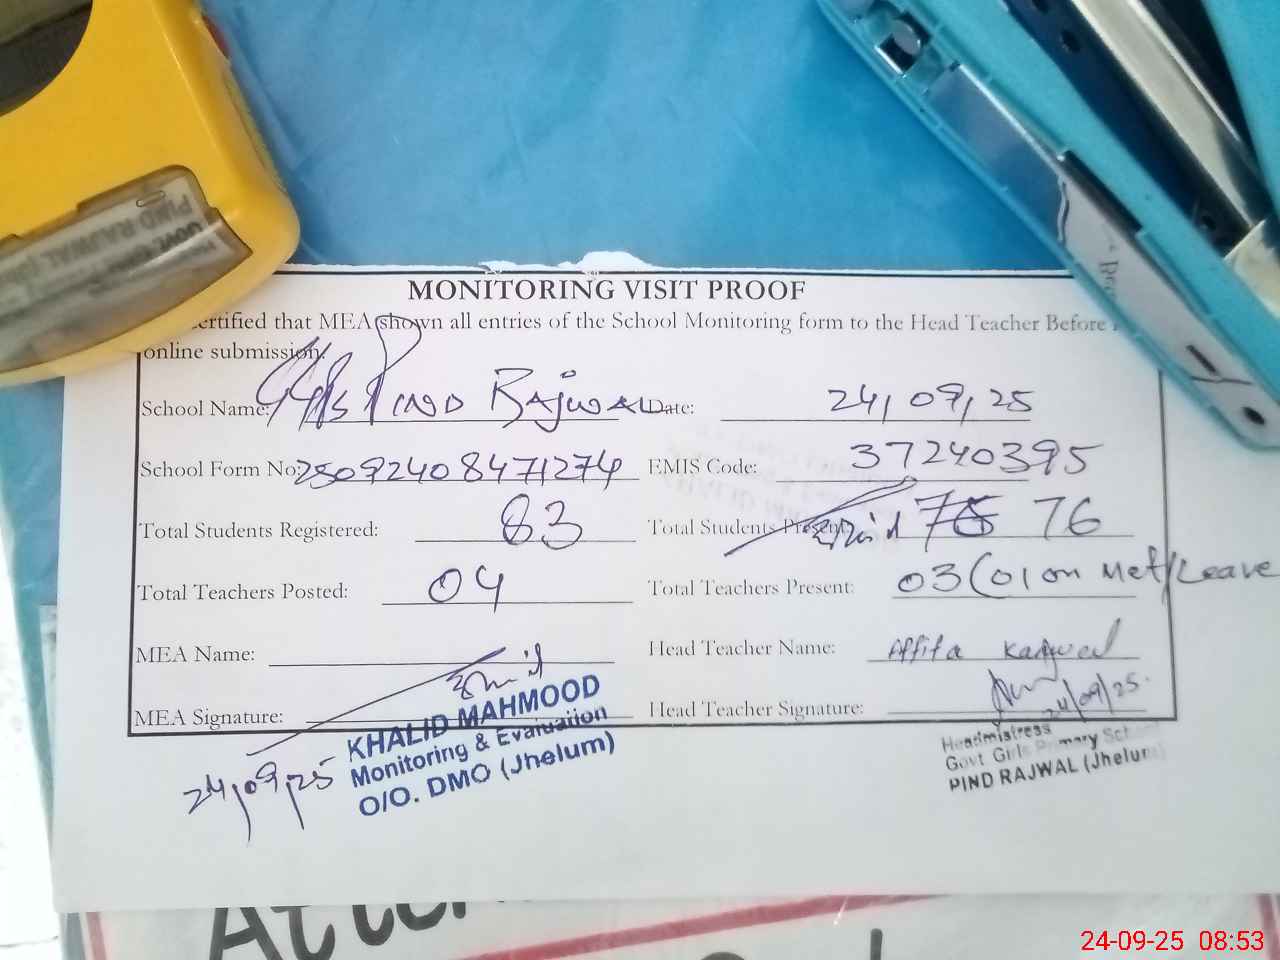 MONITORING VISIT PROOF
ertified that MEA shown all entries of the School Monitoring form to the Head Teacher Before
online submission.
School Name: GGPS PIND RAJWAL Date: 24/09/25
School Form No: 25092408471274 EMIS Code: 37240395
Total Students Registered: 83 Total Students Present: 76
Total Teachers Posted: 04 Total Teachers Present: 03 (01 on Met/Leave
MEA Name: Head Teacher Name: Affifa
MEA Signature: Head Teacher Signature: 24/09/25.
24/09/25
KHALID MAHMOOD
Monitoring & Evaluation
O/O. DMO (Jhelum)
Headmistress
Govt Girls Primary Sch
PIND RAJWAL (Jhelum)
PIND RAJWAL
24-09-25 08:53